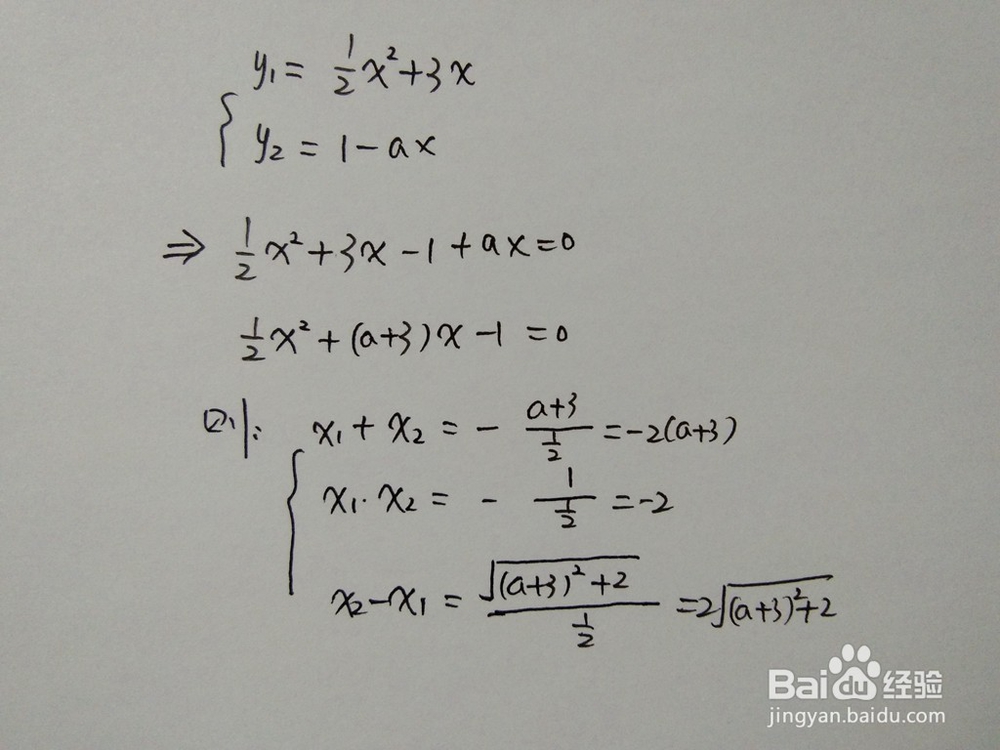 y₁ = 1/2 x² + 3x
y₂ = 1 - ax
⇒ 1/2 x² + 3x - 1 + ax = 0
1/2 x² + (a+3)x - 1 = 0
则: x₁ + x₂ = - (a+3)/(1/2) = -2(a+3)
x₁·x₂ = - 1/(1/2) = -2
x₂ - x₁ = √((a+3)² + 2)/(1/2) = 2√((a+3)² + 2)
Baidu 经验
jingyan.baidu.com